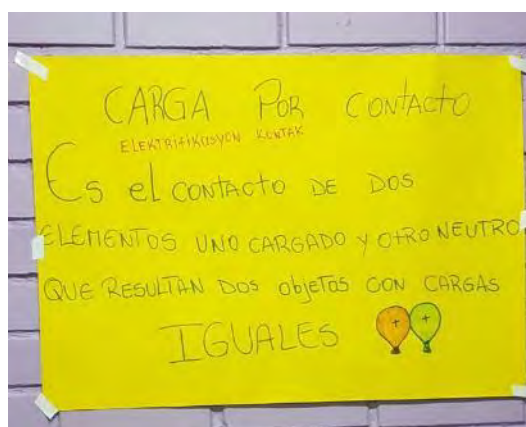 CARGA POR CONTACTO
ELEKTRIFIKASYON KONTAK
Es el CONTACTO DE DOS
ELEMENTOS UNO CARGADO Y OTRO NEUTRO
QUE RESULTAN DOS objetos CON CARGAS
IGUALES + +